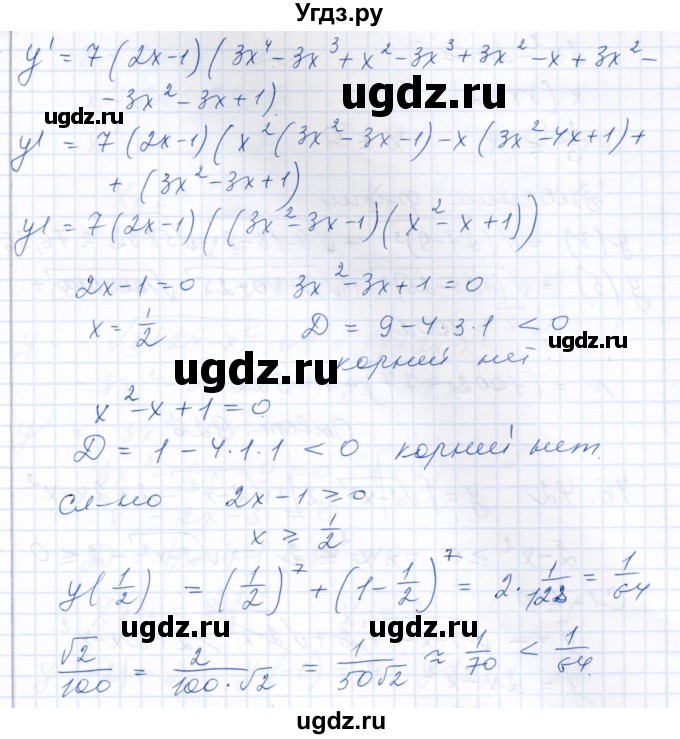 Угдз.ру
y' = 7(2x-1)(3x⁴-3x³+x²-3x³+3x²-x+3x²-
-3x²-3x+1)
ugdz.ru
ugdz.ru
y' = 7(2x-1)(x²(3x²-3x-1)-x(3x²-4x+1)+
+(3x²-3x+1)
ugdz.ru
y' = 7(2x-1)((3x²-3x-1)(x²-x+1))
2x-1=0 3x²-3x+1=0
x = 1/2 D = 9-4·3·1 < 0
ugdz.ru
ugdz.ru
корней нет.
x²-x+1=0
D = 1-4·1·1 < 0 корней нет.
ugdz.ru
сл-но 2x-1≥0
x ≥ 1/2
y(1/2) = (1/2)⁷+(1-1/2)⁷ = 2·1/128 = 1/64
ugdz.ru
ugdz.ru
√2/100 = 2/100·√2 = 1/50√2 ≈ 1/70 < 1/64.
ugdz.ru
ugdz.ru